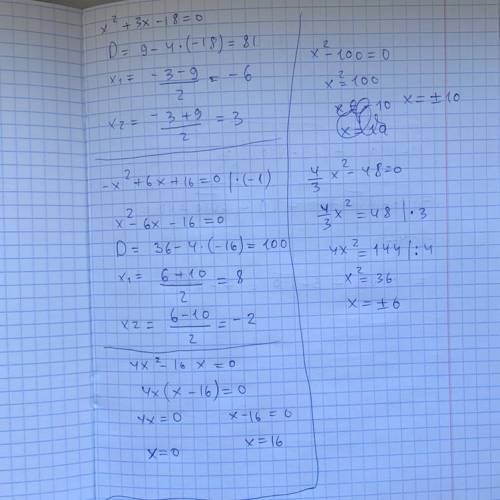 x² + 3x - 18 = 0
D = 9 - 4 · (-18) = 81
x₁ = (-3 - 9)/2 = -6
x₂ = (-3 + 9)/2 = 3
-x² + 6x + 16 = 0 | · (-1)
x² - 6x - 16 = 0
D = 36 - 4 · (-16) = 100
x₁ = (6 + 10)/2 = 8
x₂ = (6 - 10)/2 = -2
4x² - 16 x = 0
4x (x - 16) = 0
4x = 0 x - 16 = 0
x = 0 x = 16
x² - 100 = 0
x² = 100
x = ±10
4/3 x² - 48 = 0
4/3 x² = 48 | · 3
4x² = 144 | : 4
x² = 36
x = ±6